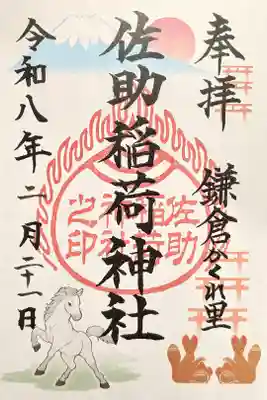 奉拝
鎌倉かくれ里
佐助稲荷神社
佐助
稲荷
神社
之印
令和八年二月二十一日